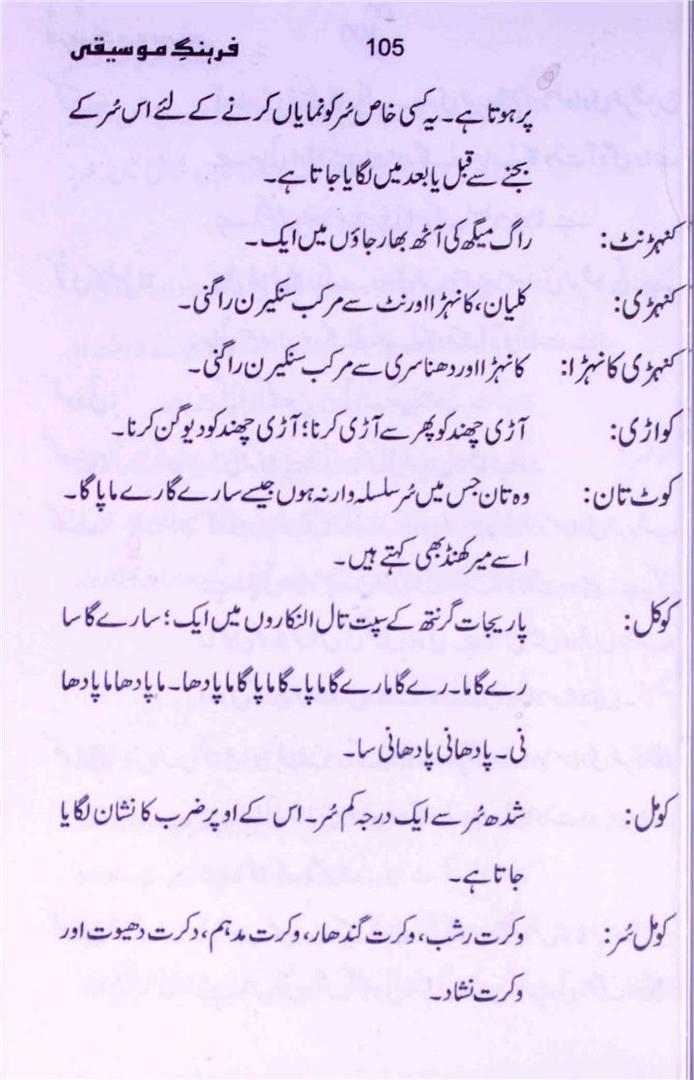 فرہنگِ موسیقی 105
پر ہوتا ہے۔ یہ کسی خاص سُر کو نمایاں کرنے کے لئے اس سُر کے
بجنے سے قبل یا بعد میں لگایا جاتا ہے۔
کنہڑنٹ: راگ میگھ کی آٹھ بھارجاؤں میں ایک۔
کنہڑی: کلیان، کانہڑا اور نٹ سے مرکب سنکیرن راگنی۔
کنہڑی کانہڑا: کانہڑا اور دھناسری سے مرکب سنکیرن راگنی۔
کواڑی: آڑی چھند کو پھر سے آڑی کرنا؛ آڑی چھند کو دیوگن کرنا۔
کوٹ تان: وہ تان جس میں سُر سلسلہ وار نہ ہوں جیسے سارے گارے ماپا گا۔
اسے میر کھنڈ بھی کہتے ہیں۔
کوکل: پاریجات گرنتھ کے سپت تال النکاروں میں ایک؛ سارے گا سا
رے گا ما۔ رے گا ما رے گا ما پا۔ گا ما پا گا ما پا دھا۔ ما پا دھا ما پا دھا
نی۔ پا دھا نی پا دھا نی سا۔
کومل: شدھ سُر سے ایک درجہ کم سُر۔ اس کے اوپر ضرب کا نشان لگایا
جاتا ہے۔
کومل سُر: وکرت رشب، وکرت گندھار، وکرت مدہم، دکرت دھیوت اور
وکرت نشاد۔